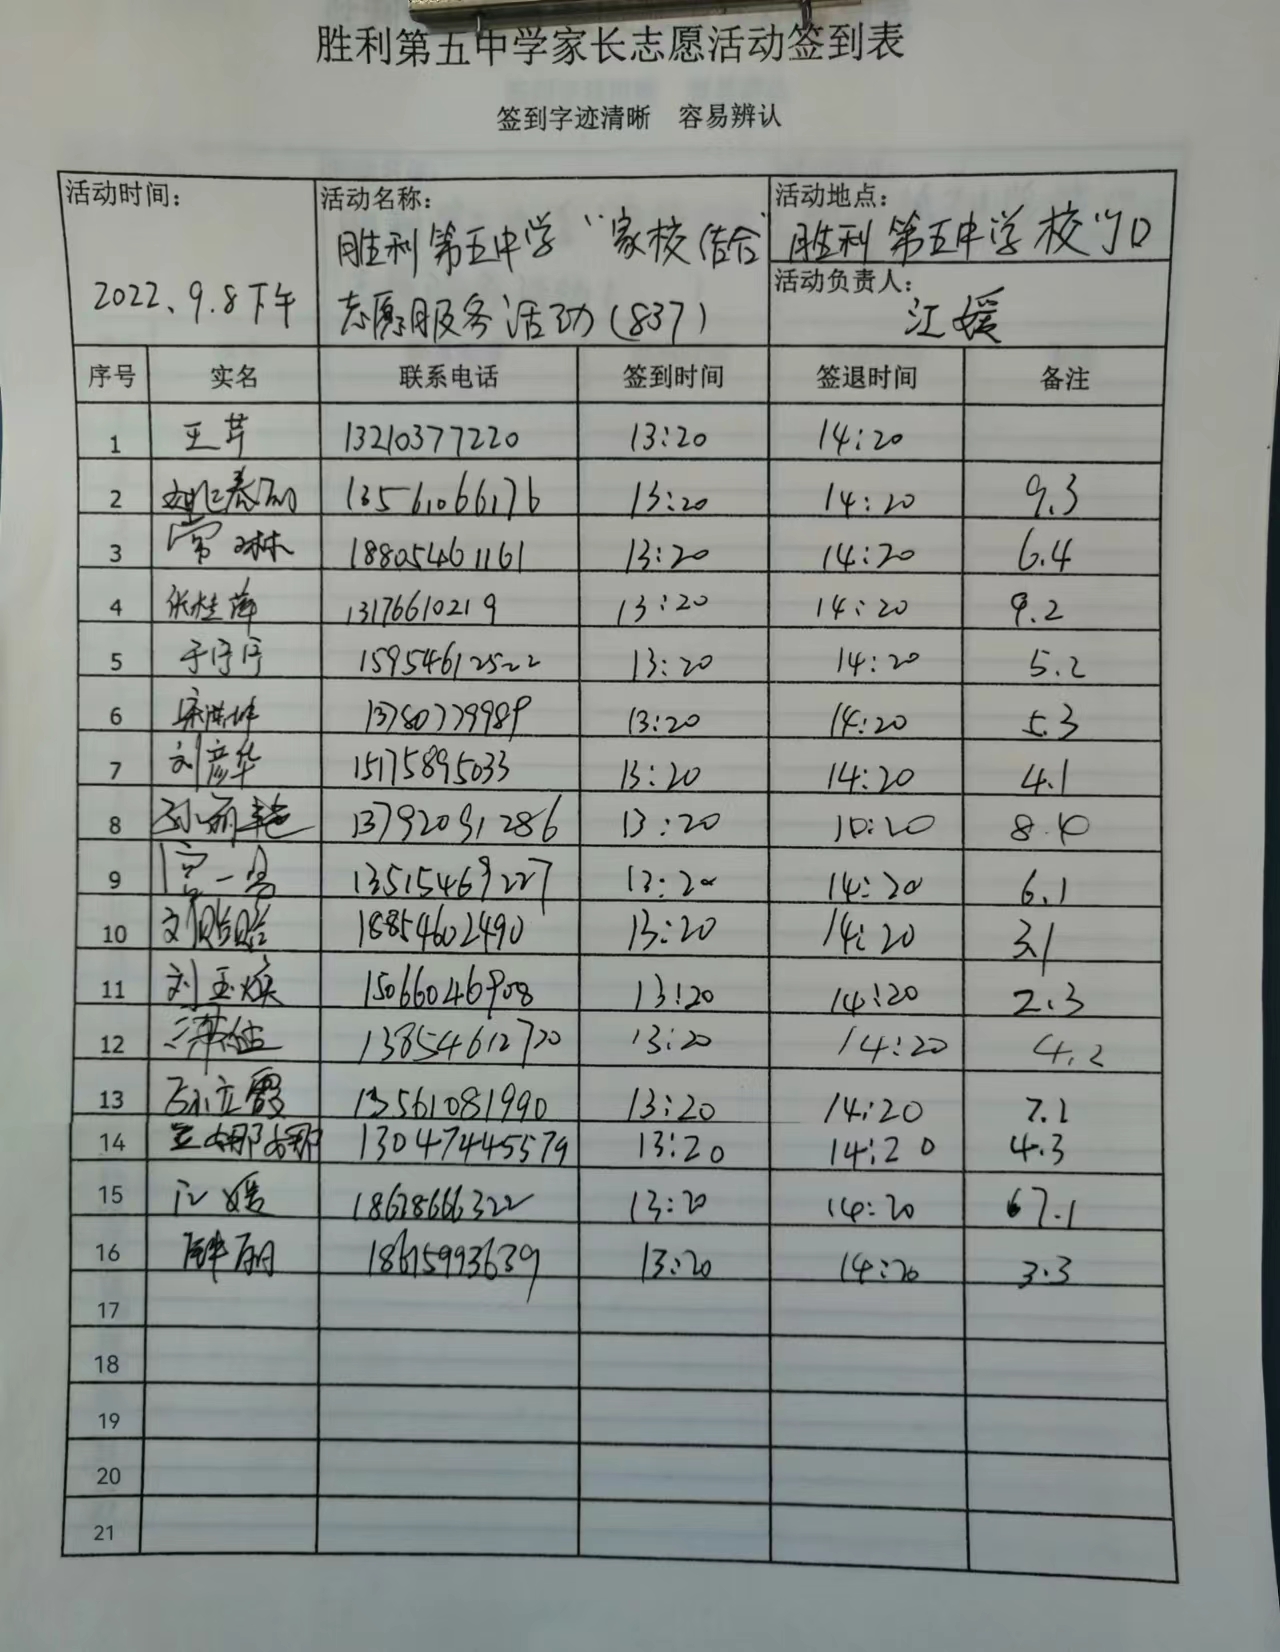 胜利第五中学家长志愿活动签到表
签到字迹清晰 容易辨认
活动时间: 活动名称: 活动地点:
胜利第五中学“家校结合” 胜利第五中学校门口
活动负责人:
2022、9.8下午 志愿服务活动(837) 江媛
序号 实名 联系电话 签到时间 签退时间 备注
1 王芹 13210377220 13:20 14:20
2 13561066176 13:20 14:20 9.3
3 常琳 18805461161 13:20 14:20 6.4
4 张桂萍 13176610219 13:20 14:20 9.2
5 于婷婷 15954612522 13:20 14:20 5.2
6 13780779989 13:20 14:20 5.3
7 刘彦华 15175895033 13:20 14:20 4.1
8 孙丽艳 13792091286 13:20 10:20 8.4
9 13515469227 13:20 14:20 6.1
10 刘晗晗 18854602490 13:20 14:20 3.1
11 刘玉焕 15066046908 13:20 14:20 2.3
12 13854612720 13:20 14:20 4.2
13 孙立霞 13561081990 13:20 14:20 7.2
14 王娜娜 13047445579 13:20 14:20 4.3
15 江媛 18678666322 13:20 14:20 7.1
16 薛丽 18615993639 13:20 14:20 3.3
17
18
19
20
21